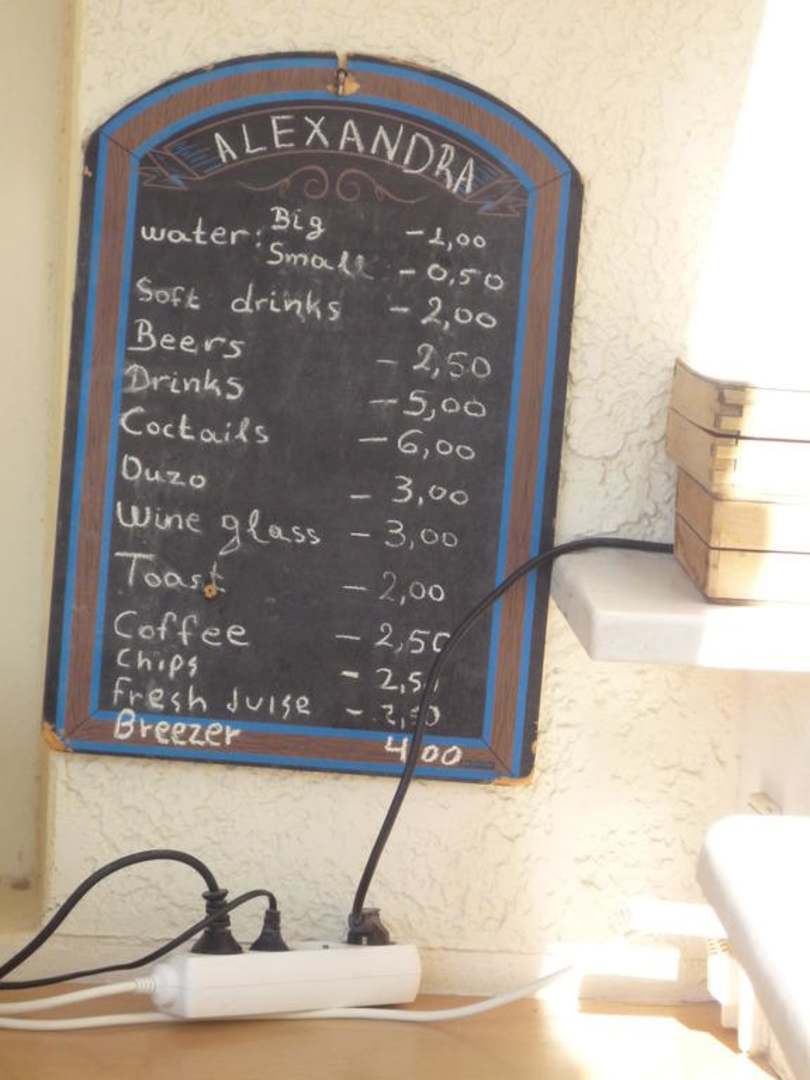 ALEXANDRA
water: Big -1,00
Small - 0,50
Soft drinks - 2,00
Beers - 2,50
Drinks - 5,00
Coctails - 6,00
Ouzo - 3,00
Wine glass - 3,00
Toast - 2,00
Coffee - 2,50
Chips - 2,5
Fresh Juise -
Breezer 4,00